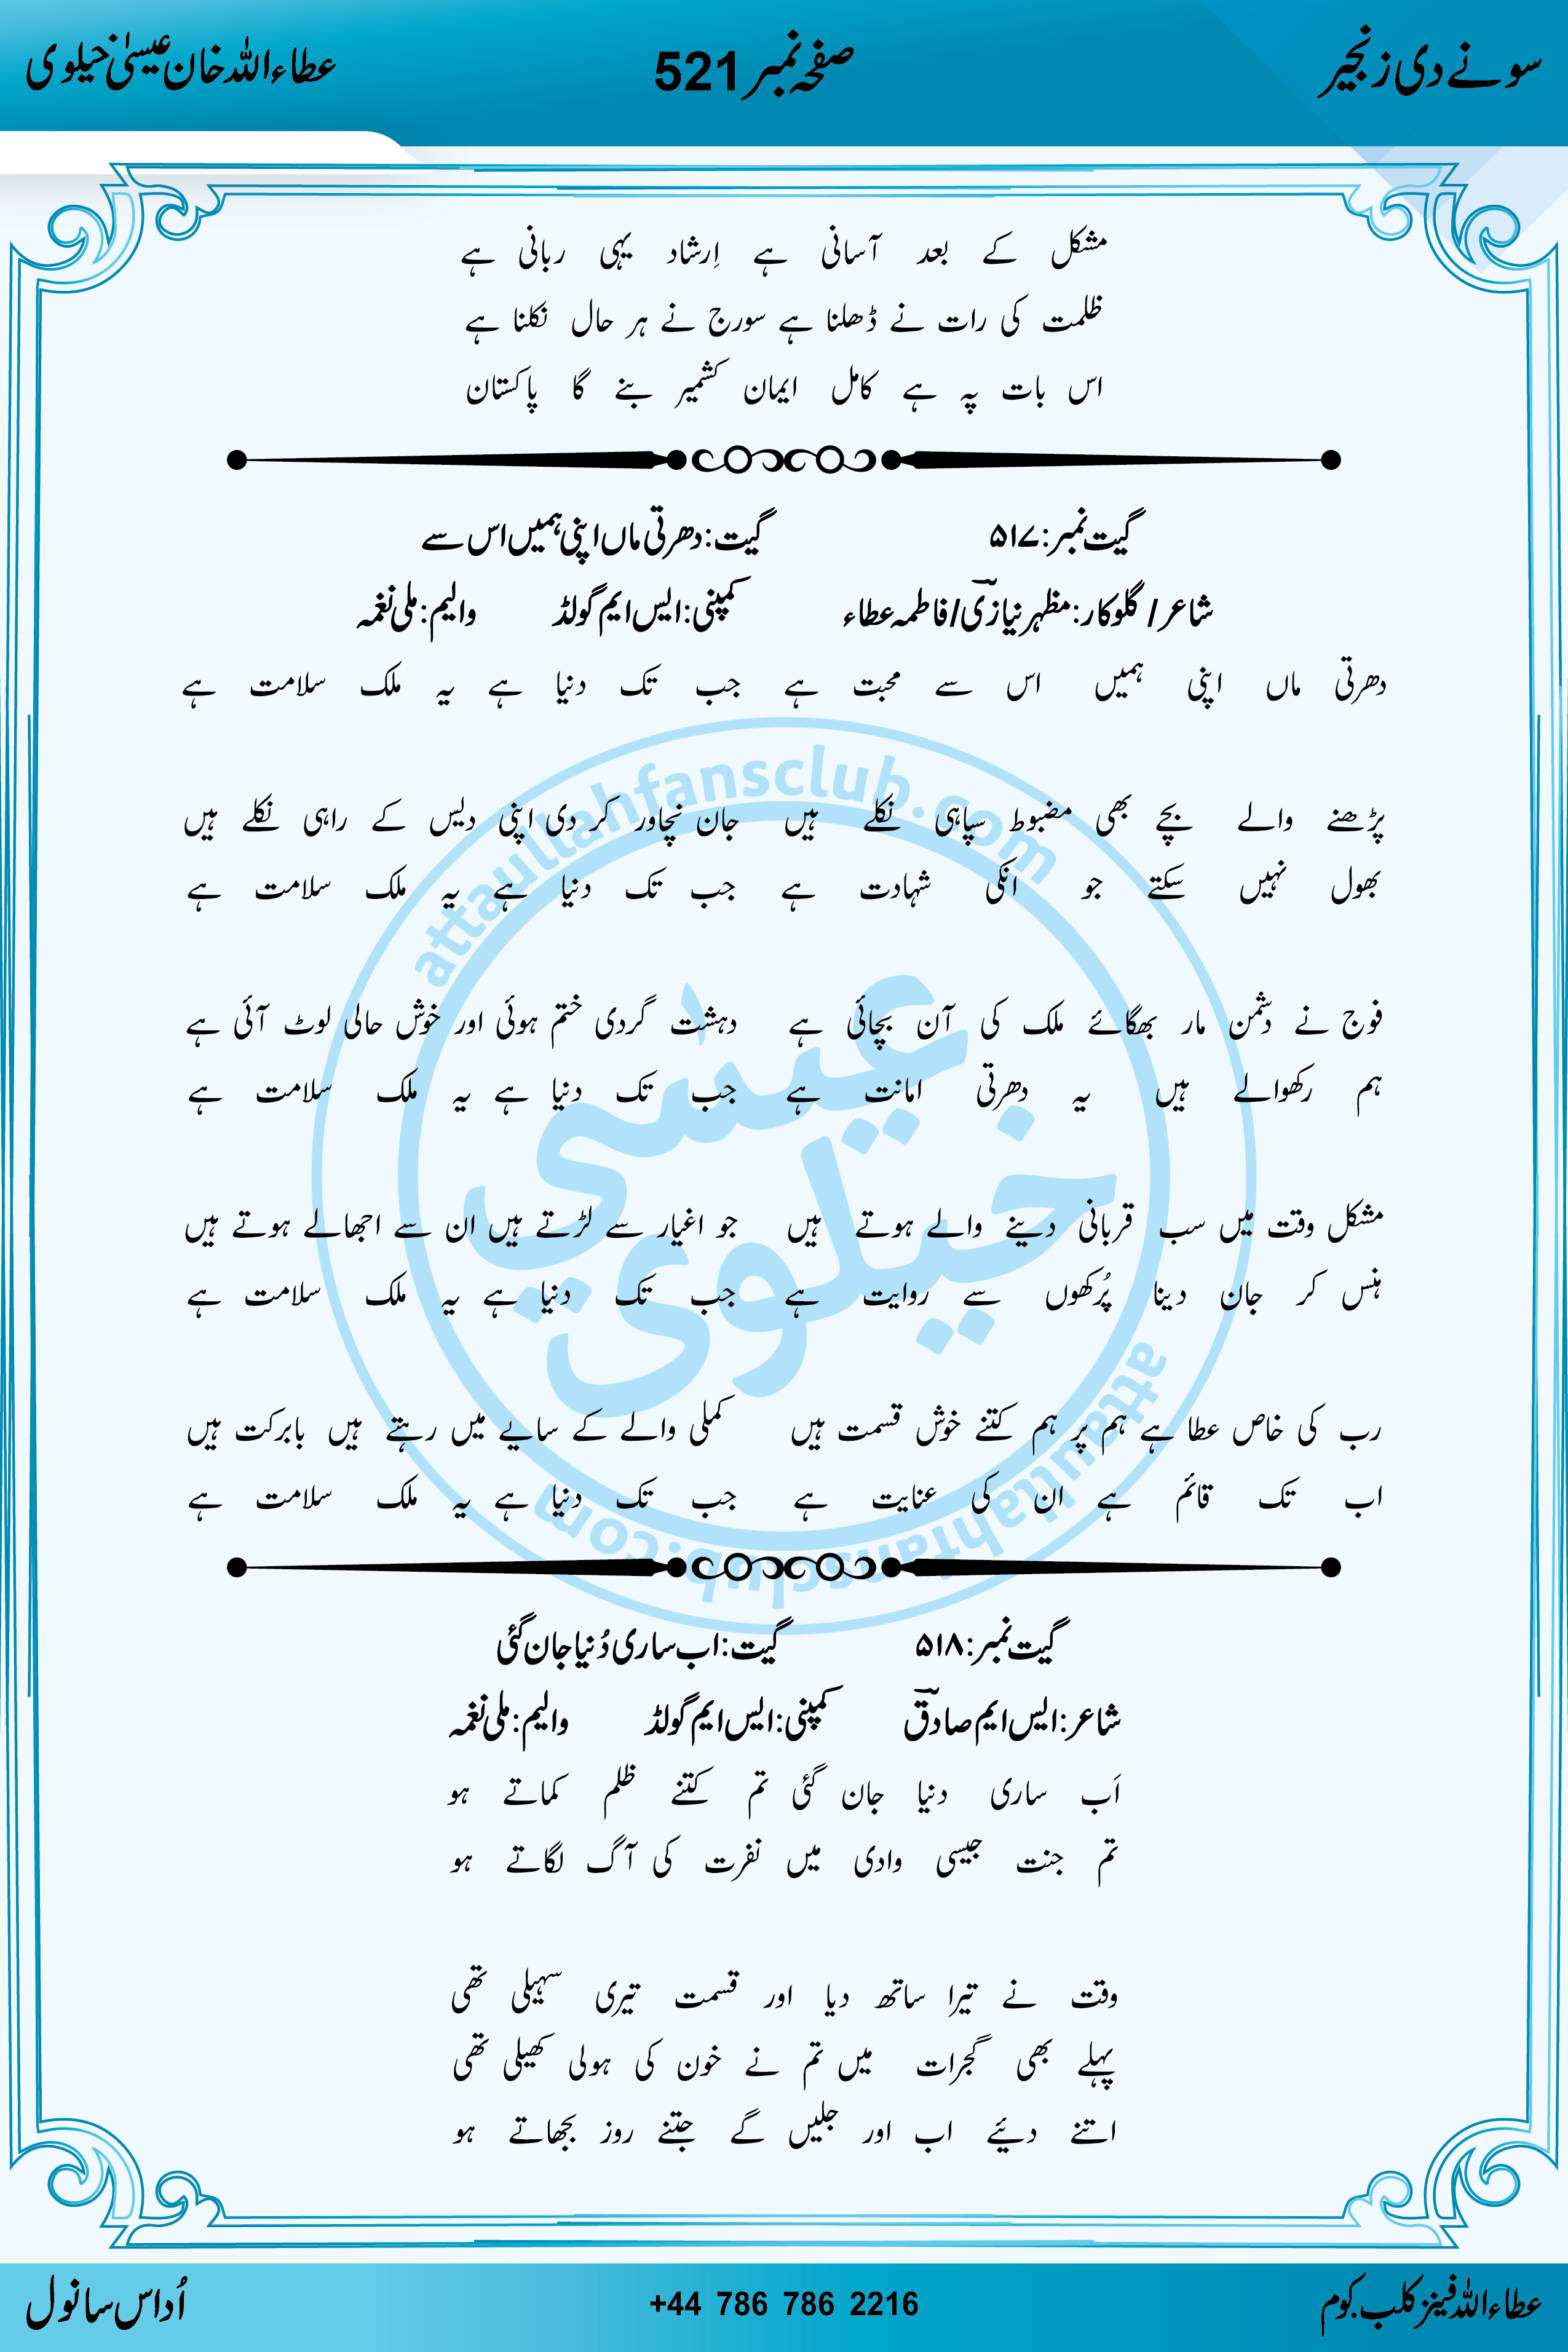 سونے دی زنجیر صفحہ نمبر 521 عطاءاللہ خان عیسیٰ خیلوی
مشکل کے بعد آسانی ہے اِرشاد یہی ربانی ہے
ظلمت کی رات نے ڈھلنا ہے سورج نے ہر حال نکلنا ہے
اس بات پہ ہے کامل ایمان کشمیر بنے گا پاکستان
گیت نمبر: ۵۱۷ گیت: دھرتی ماں اپنی ہمیں اس سے
شاعر / گلوکار: مظہر نیازیؔ / فاطمہ عطاء کمپنی: ایس ایم گولڈ والیم: ملی نغمہ
دھرتی ماں اپنی ہمیں اس سے محبت ہے جب تک دنیا ہے یہ ملک سلامت ہے
پڑھنے والے بچے بھی مضبوط سپاہی نکلے ہیں جان نچاور کر دی اپنی دیس کے راہی نکلے ہیں
بھول نہیں سکتے جو انکی شہادت ہے جب تک دنیا ہے یہ ملک سلامت ہے
فوج نے دشمن مار بھگائے ملک کی آن بچائی ہے دہشت گردی ختم ہوئی اور خوش حالی لوٹ آئی ہے
ہم رکھوالے ہیں یہ دھرتی امانت ہے جب تک دنیا ہے یہ ملک سلامت ہے
مشکل وقت میں سب قربانی دینے والے ہوتے ہیں جو اغیار سے لڑتے ہیں ان سے اجھالے ہوتے ہیں
ہنس کر جان دینا پُرکھوں سے روایت ہے جب تک دنیا ہے یہ ملک سلامت ہے
رب کی خاص عطا ہے ہم پر ہم کتنے خوش قسمت ہیں کملی والے کے سایے میں رہتے ہیں بابرکت ہیں
اب تک قائم ہے ان کی عنایت ہے جب تک دنیا ہے یہ ملک سلامت ہے
گیت نمبر: ۵۱۸ گیت: اب ساری دُنیا جان گئی
شاعر: ایس ایم صادقؔ کمپنی: ایس ایم گولڈ والیم: ملی نغمہ
اَب ساری دنیا جان گئی تم کتنے ظلم کماتے ہو
تم جنت جیسی وادی میں نفرت کی آگ لگاتے ہو
وقت نے تیرا ساتھ دیا اور قسمت تیری سہیلی تھی
پہلے بھی گجرات میں تم نے خون کی ہولی کھیلی تھی
اتنے دیئے اب اور جلیں گے جتنے روز بجھاتے ہو
عطاءاللہ فینز کلب.کوم +44 786 786 2216 اُداس سانول
attaullahfansclub.com
عیسٰی
خیلوی
attaullahfansclub.com